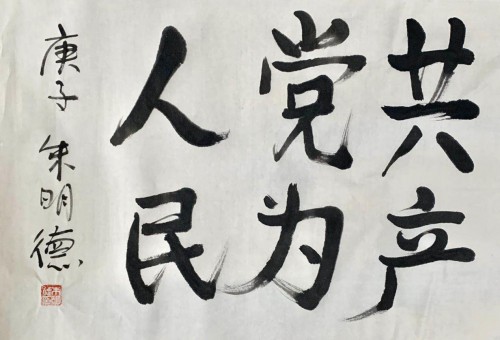 共产
党为
人民
庚子 朱明德